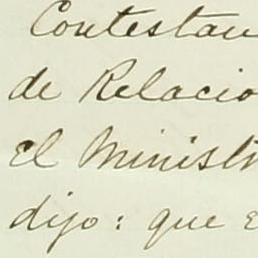 Contestan
de Relacio
el Minist
dijo: que e